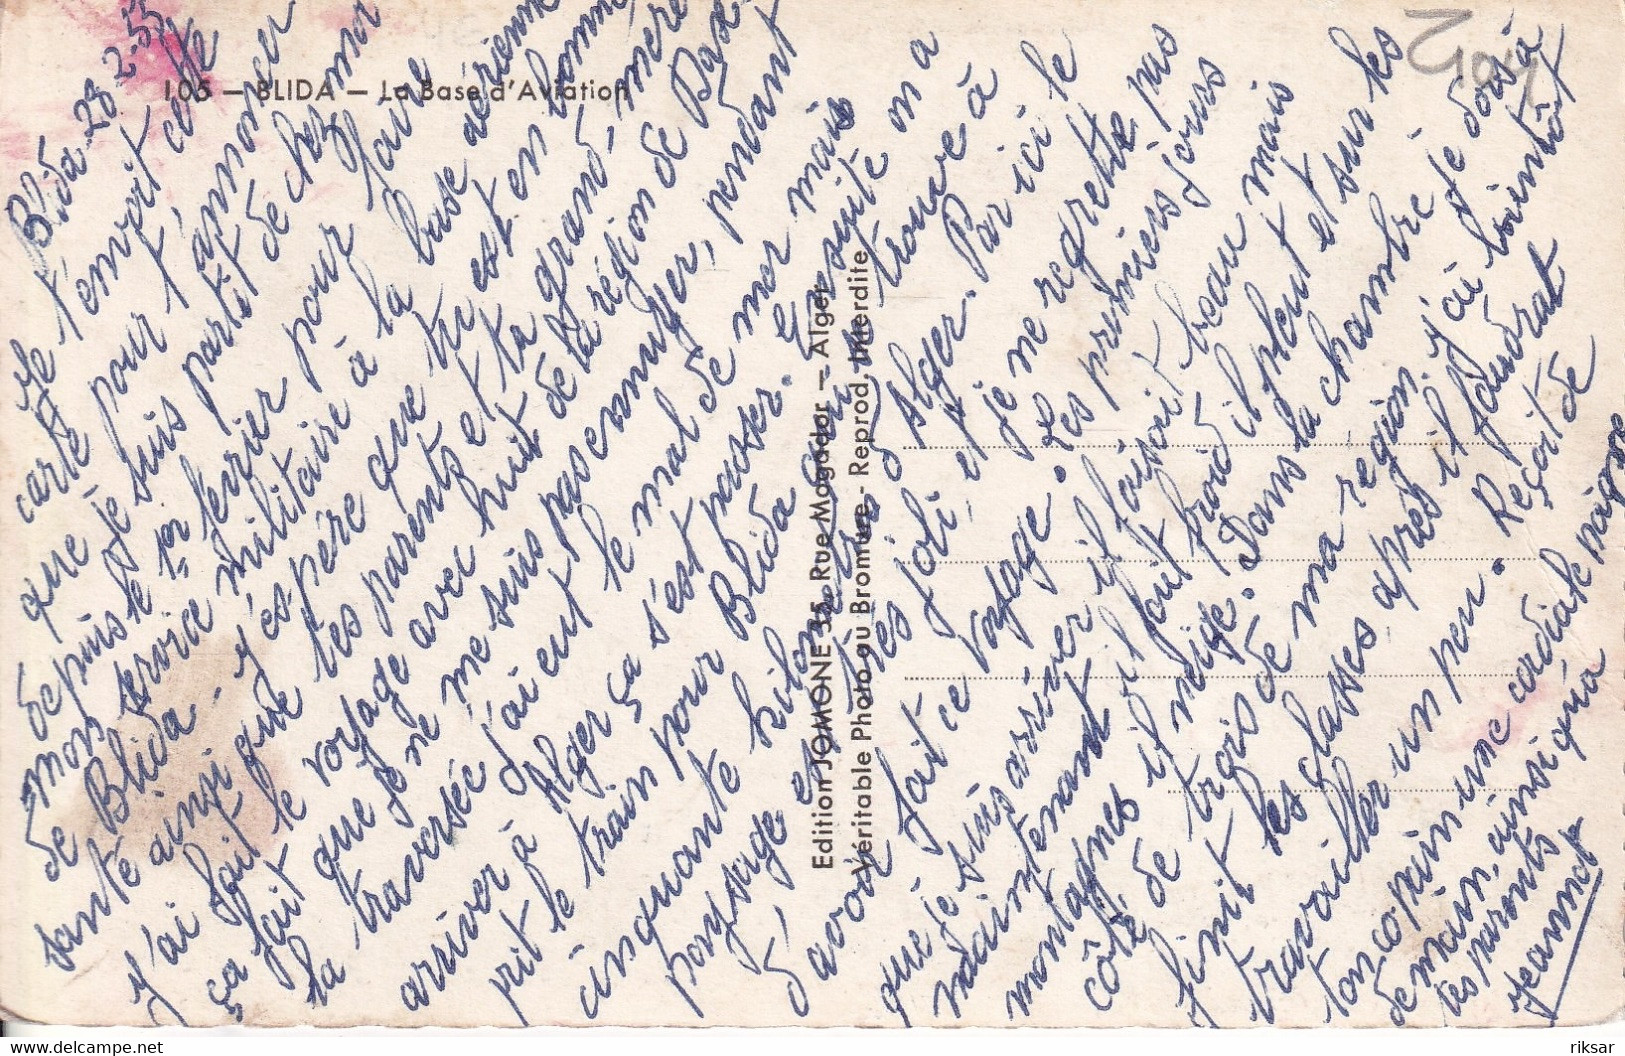 105 — BLIDA — La Base d'Aviation
Blida 28-2-55
Je t'envoit cette
carte pour t'annoncer
que je suis partit de chez moi
depuis le 1er février pour faire
mon service militaire à la base aérienne
de Blida - j'éspére que tu est en bonne
santé ainsi que tes parents et ta grand'mère
J'ai fait le voyage avec huit de la région de Dax
ça fait que je ne me suis pas ennuyer, pendant
la traversée j'ai eut le mal de mer mais
arriver à Alger ça s'est passer. Ensuite on a
prit le train pour Blida qui se trouve à
cinquante kilomètres d'Alger. Par ici le
paysage est très joli, et je ne regrette pas
d'avoir fait ce voyage. Les premiers jours
que je suis arriver il faisait beau mais
maintenant il fait froid il pleut et sur les
montagnes il neige. Dans la chambre je dors à
côté de trois de ma région. j'ai bientôt
finit les classes, après il faudrat
travailler un peu. Reçoit de
ton copain une cordiale poignee
de main, ainsi qu'a
tes parents
Jeannot
Edition JOMONE 35, Rue Mogador — Alger
Véritable Photo au Bromure - Reprod. Interdite
riksar
www.delcampe.net